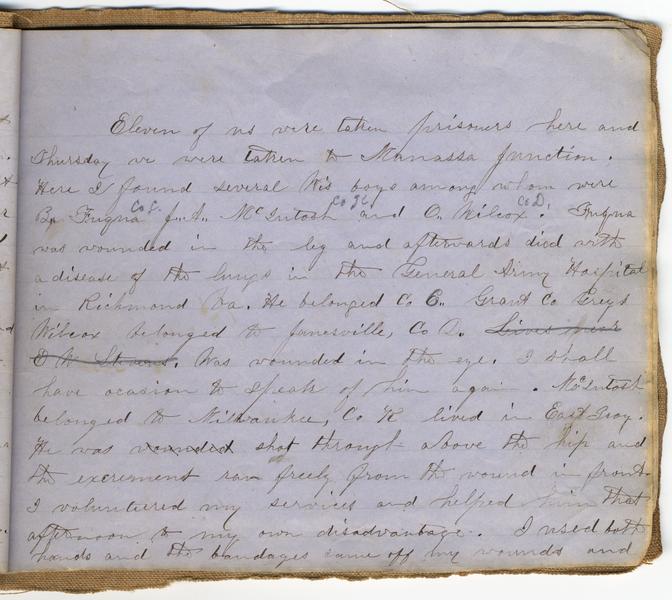 Eleven of us were taken prisoners here and
Thursday we were taken to Manassa Junction.
Here I found several Wis boys among whom were
Co C. Co K. Co D.
B. Fuqua J. A. McIntosh and O. Wilcox. Fuqua
was wounded in the leg and afterwards died with
a disease of the lungs in the General Army Hospital
in Richmond Va. He belonged Co C. Grant Co Greys
Wilcox belonged to Janesville, Co D. Lives near
Was wounded in the eye. I shall
have ocasion to speak of him again. McIntosh
belonged to Milwaukee, Co K lived in East Troy.
He was wounded shot through above the hip and
the excrement ran freely from the wound in front.
I volunteered my services and helped him that
afternoon to my own disadvantage. I used both
hands and the bandages came off my wounds and